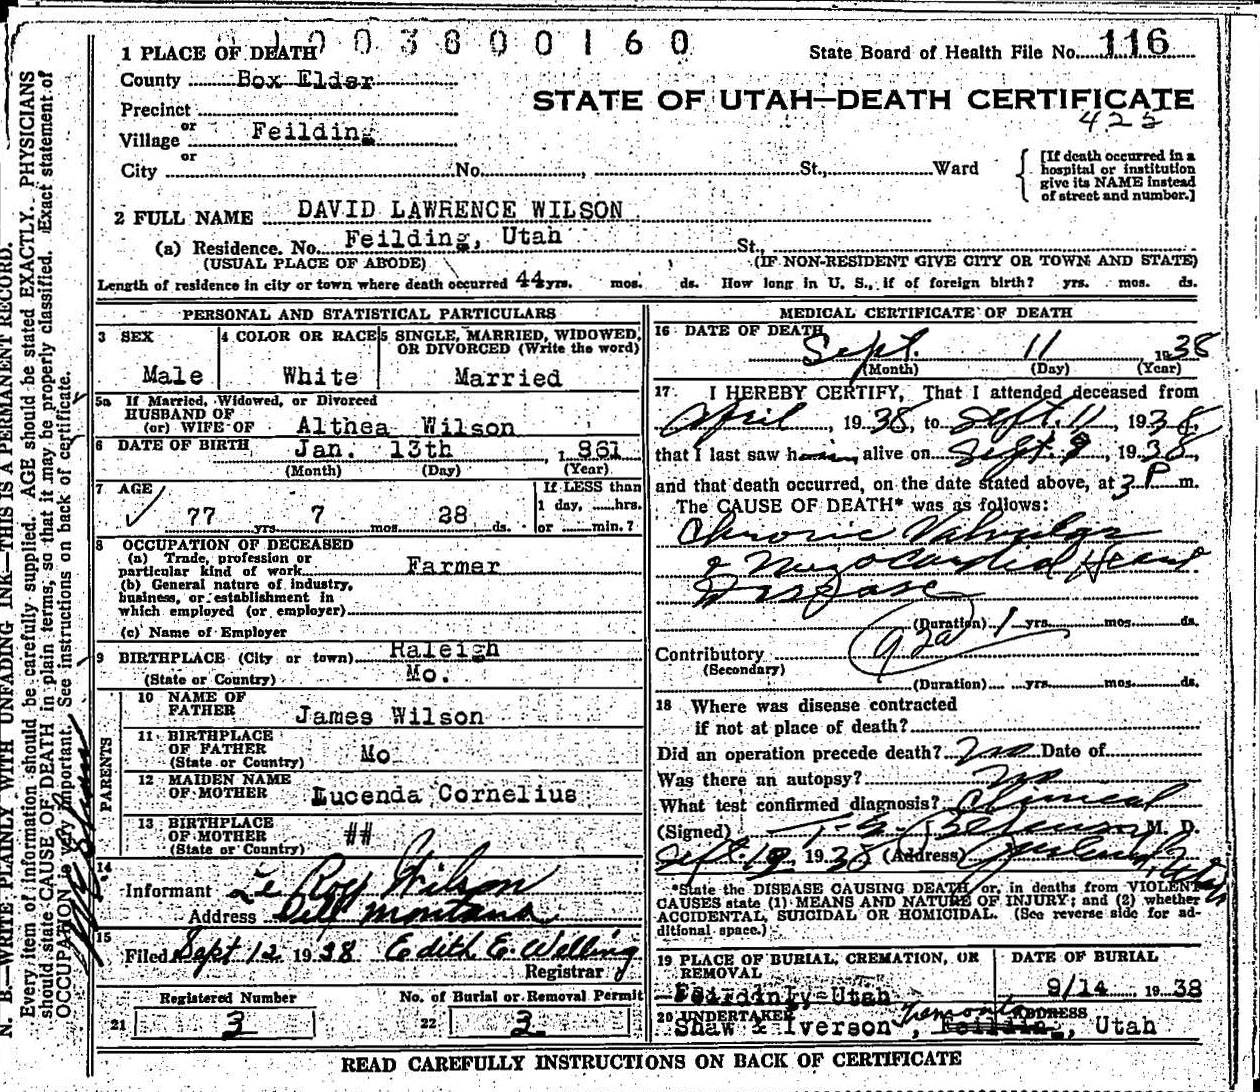 N. B.—WRITE PLAINLY WITH UNFADING INK—THIS IS A PERMANENT RECORD.
Every item of information should be carefully supplied. AGE should be stated EXACTLY. PHYSICIANS
should state CAUSE OF DEATH in plain terms, so that it may be properly classified. Exact statement of
OCCUPATION is very important. See instructions on back of certificate.
0 1 0 0 3 8 0 0 1 6 0
1 PLACE OF DEATH
State Board of Health File No. 116
County Box Elder
STATE OF UTAH—DEATH CERTIFICATE
425
Precinct
or
Village Feilding
or
City No. , St., Ward
[If death occurred in a
hospital or institution
give its NAME instead
of street and number.]
2 FULL NAME DAVID LAWRENCE WILSON
(a) Residence. No. Feilding, Utah St.,
(USUAL PLACE OF ABODE) (IF NON-RESIDENT GIVE CITY OR TOWN AND STATE)
Length of residence in city or town where death occurred 44 yrs. mos. ds. How long in U. S., if of foreign birth? yrs. mos. ds.
PERSONAL AND STATISTICAL PARTICULARS
3 SEX
Male
4 COLOR OR RACE
White
5 SINGLE, MARRIED, WIDOWED,
OR DIVORCED (Write the word)
Married
5a If Married, Widowed, or Divorced
HUSBAND OF
(or) WIFE OF Althea Wilson
6 DATE OF BIRTH Jan. 13th , 1 861
(Month) (Day) (Year)
7 AGE
77 yrs 7 mos 28 ds.
If LESS than
1 day, hrs.
or min.?
8 OCCUPATION OF DECEASED
(a) Trade, profession or
particular kind of work Farmer
(b) General nature of industry,
business, or establishment in
which employed (or employer)
(c) Name of Employer
9 BIRTHPLACE (City or town) Raleigh
(State or Country) Mo.
PARENTS
10 NAME OF
FATHER James Wilson
11 BIRTHPLACE
OF FATHER
(State or Country) Mo
12 MAIDEN NAME
OF MOTHER Lucenda Cornelius
13 BIRTHPLACE
OF MOTHER
(State or Country) ##
14
Informant Le Roy Wilson
Address Dell Montana
15
Filed Sept 12 1938 Edith E. Welling
Registrar
Registered Number
21 3
No. of Burial or Removal Permit
22 3
MEDICAL CERTIFICATE OF DEATH
16 DATE OF DEATH
Sept. 11 1938
(Month) (Day) (Year)
17 I HEREBY CERTIFY, That I attended deceased from
April , 1938, to Sept. 11, 1938,
that I last saw him alive on Sept. 9, 1938,
and that death occurred, on the date stated above, at 3 P. m.
The CAUSE OF DEATH* was as follows:
Chronic Valvular
& Myocardial Heart
Disease
(Duration) 1 yrs. mos. ds.
92a
Contributory
(Secondary)
(Duration) yrs. mos. ds.
18 Where was disease contracted
if not at place of death?
Did an operation precede death? No Date of
Was there an autopsy? No
What test confirmed diagnosis? Clinical
(Signed) M. D.
Sept. 12, 1938 (Address) Utah
*State the DISEASE CAUSING DEATH, or, in deaths from VIOLENT
CAUSES state (1) MEANS AND NATURE OF INJURY; and (2) whether
ACCIDENTAL, SUICIDAL OR HOMICIDAL. (See reverse side for ad-
ditional space.)
19 PLACE OF BURIAL, CREMATION, OR
REMOVAL
Utah
DATE OF BURIAL
9/14 1938
20 UNDERTAKER ADDRESS
Shaw & Iverson, Tremonton, Feilding, Utah
READ CAREFULLY INSTRUCTIONS ON BACK OF CERTIFICATE